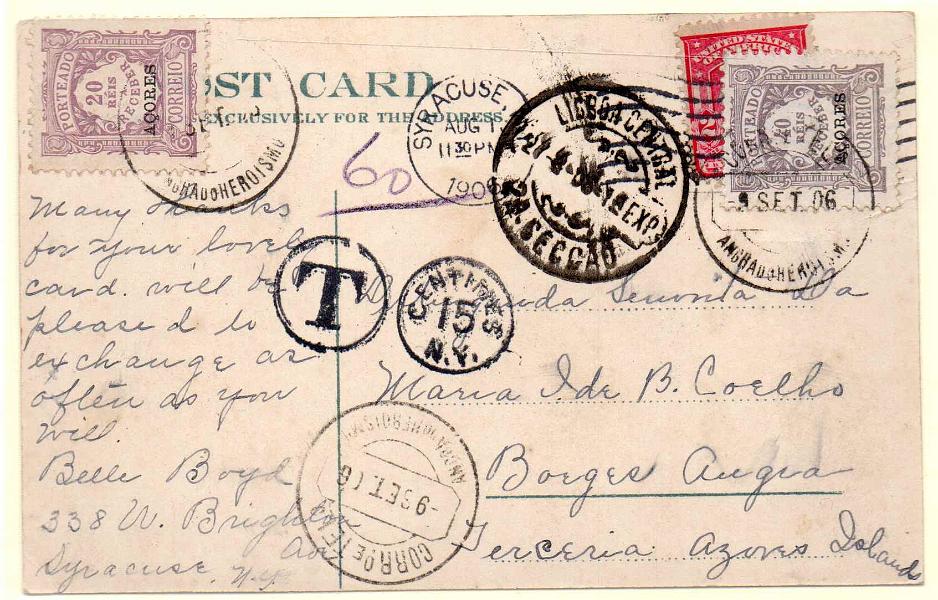 POST CARD
EXCLUSIVELY FOR THE ADDRESS.
PORTEADO
20
RÉIS
A RECEBER
CORREIO
AÇORES
ANGRA DO HEROISMO
SYRACUSE,
AUG 1
11 30 PM
1906
LISBOA CENTRAL
2ª SECÇÃO
UNITED STATES
OF AMERICA
2
PORTEADO
40
RÉIS
A RECEBER
CORREIO
AÇORES
-9 SET. 06
ANGRA DO HEROISMO
60
T
CENTIMES
15
N.Y.
Many thanks
for your lovel
card. will be
pleased to
exchange as
often as you
will.
Belle Boyd
338 W. Brighton
Av
Syracuse, N.Y.
Senorita Da
Maria Ide B. Coelho
Borges Angra
Terceria Azores Islands
ANGRA DO HEROISMO
-9 SET. 06